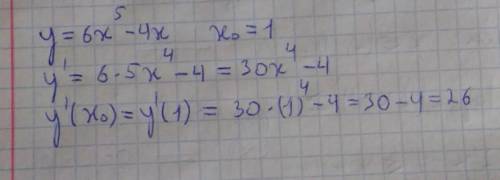 y = 6x⁵ - 4x x₀ = 1
y' = 6 · 5x⁴ - 4 = 30x⁴ - 4
y'(x₀) = y'(1) = 30 · (1)⁴ - 4 = 30 - 4 = 26